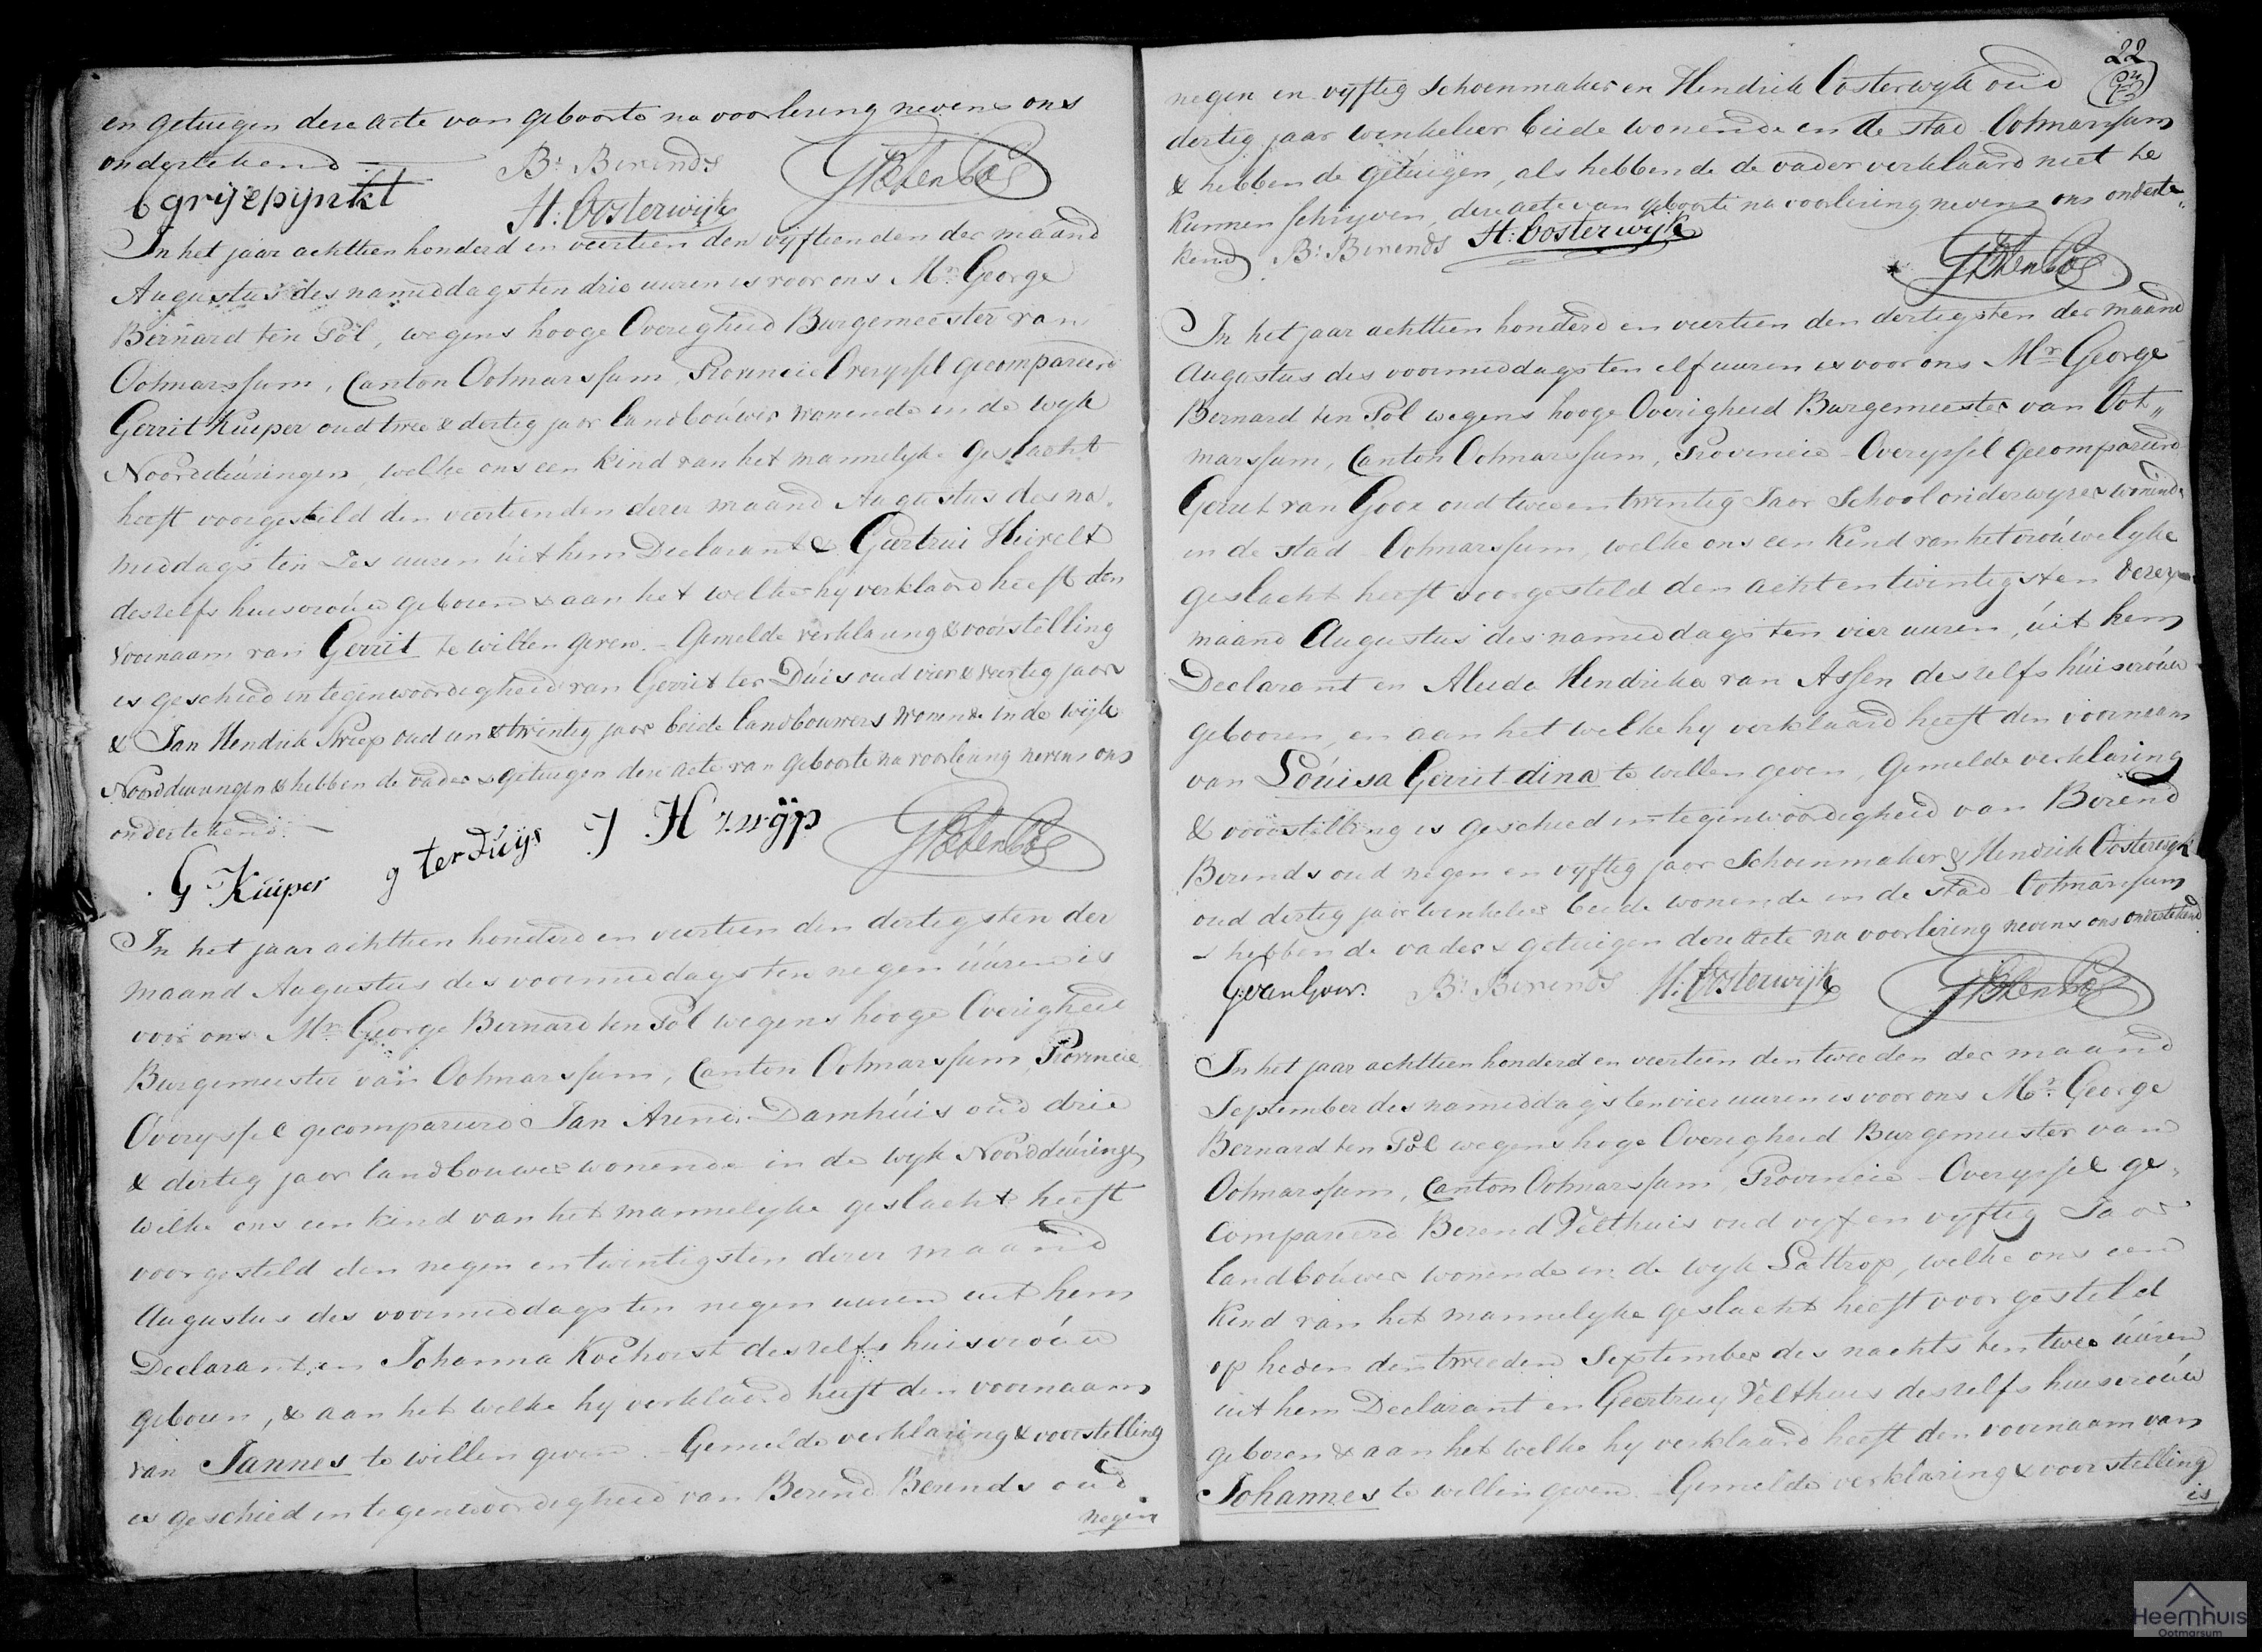 en getuigen dese acte van geboorte na voorlesing nevens ons
ondertekend
B: Berends
b grijzepijnkt
H: Oosterwijk
GBtenPol
In het jaar achttien honderd en veertien den vyftienden der maand
Augustus des namiddags ten drie uuren is voor ons Mr. George
Bernard ten Pol, wegens hooge Overigheid Burgemeester van
Ootmarssum, Canton Ootmarssum, Provincie Overyssel gecompareerd
Gerrit Kuiper oud twee & dertig jaar landbouwer wonende in de wyk
Noorddeuringen, welke ons een kind van het mannelyke geslacht
heeft voorgesteld den veertienden dezer maand Augustus des na-
middags ten zes uuren uit hem Declarant & Geertrui
deszelfs huisvrouw geboren & aan het welke hy verklaard heeft den
voornaam van Gerrit te willen geven. - Gemelde verklaring & voorstelling
is geschied in tegenwoordigheid van Gerrit ter Duis oud vier & veertig jaar
& Jan Hendrik oud een & twintig jaar beide landbouwers wonende in de wyk
Noorddeuringen & hebben de vader & getuigen dese acte van geboorte na voorlesing nevens ons
ondertekend. -
G Kuiper g ter duijs J H zwijp GBtenPol
In het jaar achttien honderd en veertien den dertigsten der
maand Augustus des voormiddags ten negen uuren is
voor ons Mr. George Bernard ten Pol wegens hooge Overigheid
Burgemeester van Ootmarssum, Canton Ootmarssum, Provincie
Overyssel gecompareerd Jan Arend Damhuis oud drie
& dertig jaar landbouwer wonende in de wyk Noorddeuringe
welke ons een kind van het mannelyke geslacht heeft
voorgesteld den negen en twintigsten dezer maand
Augustus des voormiddags ten negen uuren uit hem
Declarant en Johanna Koehorst deszelfs huisvrouw
geboren, & aan het welke hy verklaard heeft den voornaam
van Jannes te willen geven. - Gemelde verklaring & voorstelling
is geschied in tegenwoordigheid van Berend Berends oud
negen
22
negen en vyftig Schoenmaker en Hendrik Oosterwyk oud
dertig jaar winkelier beide wonende in de stad Ootmarssum
& hebben de getuigen, als hebbende de vader verklaard niet te
kunnen schryven, dese acte van geboorte na voorlesing nevens ons onderte-
kend B: Berends H: Oosterwijk
GBtenPol
In het jaar achttien honderd en veertien den dertigsten der maand
Augustus des voormiddags ten elf uuren is voor ons Mr. George
Bernard ten Pol wegens hooge Overigheid Burgemeester van Oot„
marssum, Canton Ootmarssum, Provincie Overyssel gecompareerd
Gerrit van Goor oud twee en twintig Jaar Schoolonderwyzer wonende
in de stad Ootmarssum, welke ons een Kind van het vrouwelyke
geslacht heeft voorgesteld den acht en twintigsten dezer
maand Augustus des namiddags ten vier uuren, uit hem
Declarant en Aleida Hendrika van Assen deszelfs huisvrouw
gebooren, en aan het welke hy verklaard heeft den voornaam
van Louisa Gerritdina te willen geven, Gemelde verklaring
& voorstelling is geschied in tegenwoordigheid van Berend
Berends oud negen en vyftig jaar Schoenmaker & Hendrik Oosterwyk
oud dertig jaar winkelier beide wonende in de stad Ootmarssum
& hebben de vader & getuigen dese acte na voorlesing nevens ons ondertekend
G: van Goor. B: Berends H: Oosterwijk GBtenPol
In het jaar achttien honderd en veertien den tweeden der maand
September des namiddags ten vier uuren is voor ons Mr. George
Bernard ten Pol wegens hoge Overigheid Burgemeester van
Ootmarssum, Canton Ootmarssum Provincie Overyssel ge-
compareerd Berend Velthuis oud vyf en vyftig Jaar
landbouwer wonende in de wyk Lattrop, welke ons een
Kind van het mannelyke geslacht heeft voorgesteld
op heden den tweeden September des nachts ten twee uuren
uit hem Declarant en Geertruy Velthuis deszelfs huisvrouw
geboren & aan het welke hy verklaard heeft den voornaam van
Johannes te willen geven. Gemelde verklaring & voorstelling
is
Heemhuis
Ootmarsum